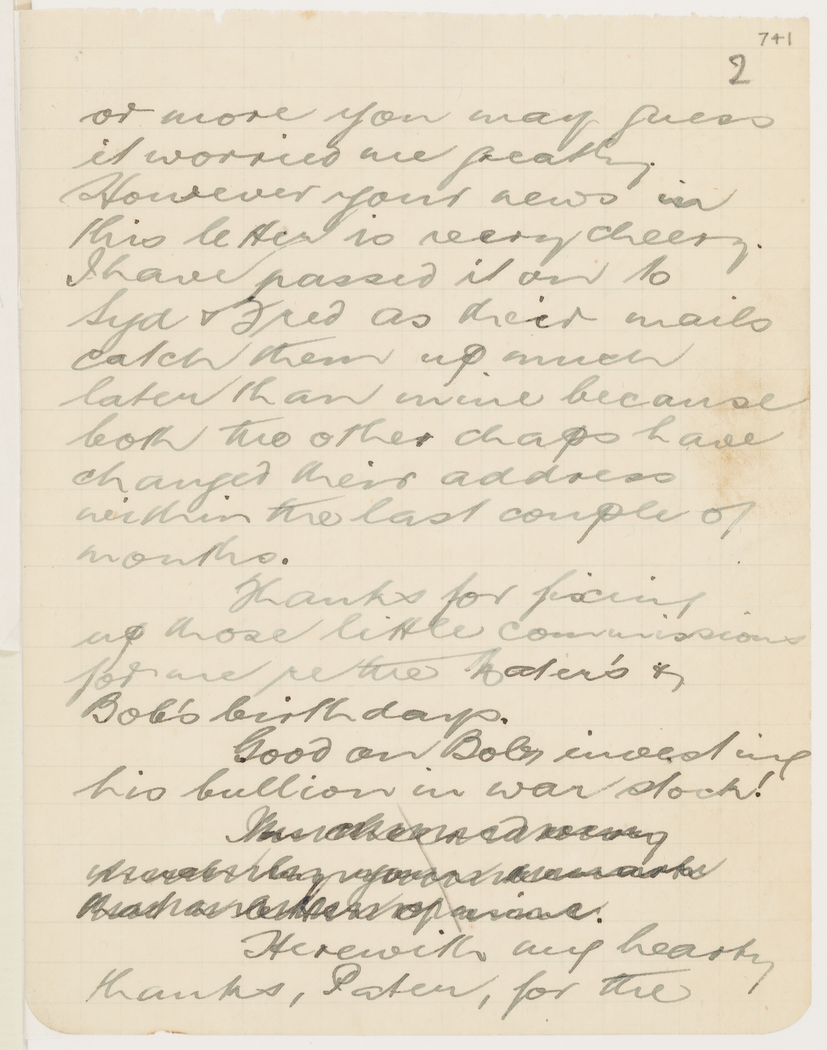 741
2
or more you may guess
it worried me greatly.
However your news in
this letter is very cheery.
I have passed it on to
Syd & Fred as their mails
catch them up much
later than mine because
both the other chaps have
changed their address
within the last couple of
months.
Thanks for fixing
up those little commissions
for me re the Pater's &
Bob's birthdays.
Good on Bob investing
his bullion in war stock!
Herewith my hearty
thanks, Pater, for the